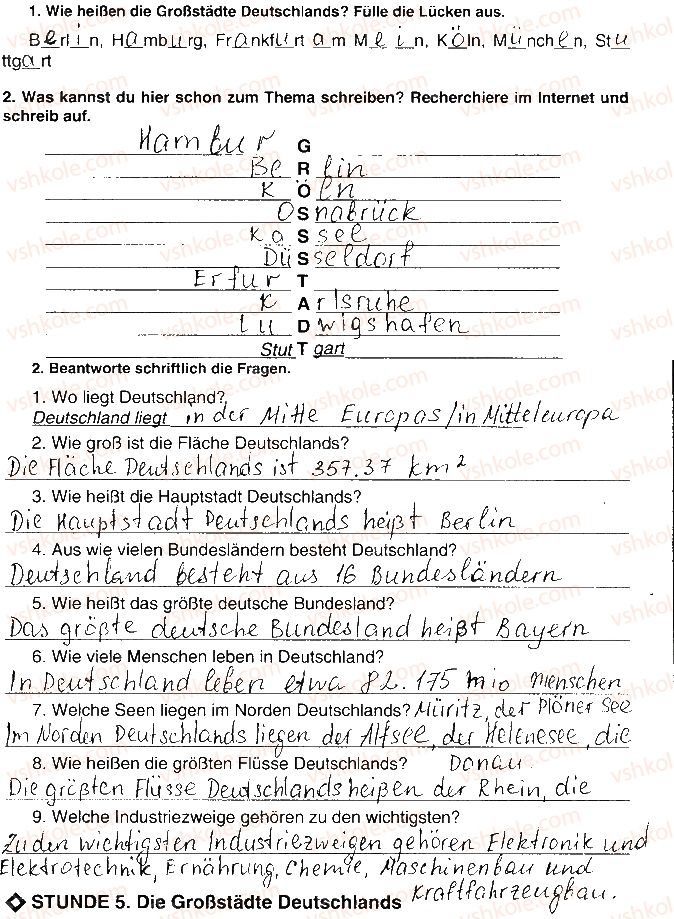 1. Wie heißen die Großstädte Deutschlands? Fülle die Lücken aus.
Berlin, Hamburg, Frankfurt am Mein, Köln, München, Stu
ttgart
2. Was kannst du hier schon zum Thema schreiben? Recherchiere im Internet und
schreib auf.
Hambur G
Be R lin
K Ö ln
O S nabrück
Ka S sel
Dü S seldorf
Erfur T
K A rlsruhe
Lu D wigshafen
Stut T gart
2. Beantworte schriftlich die Fragen.
1. Wo liegt Deutschland?
Deutschland liegt in der Mitte Europas/in Mitteleuropa
2. Wie groß ist die Fläche Deutschlands?
Die Fläche Deutschlands ist 357.37 km²
3. Wie heißt die Hauptstadt Deutschlands?
Die Hauptstadt Deutschlands heißt Berlin
4. Aus wie vielen Bundesländern besteht Deutschland?
Deutschland besteht aus 16 Bundesländern
5. Wie heißt das größte deutsche Bundesland?
Das größte deutsche Bundesland heißt Bayern
6. Wie viele Menschen leben in Deutschland?
In Deutschland leben etwa 82.175 mio Menschen
7. Welche Seen liegen im Norden Deutschlands? Müritz, der Plöner See
Im Norden Deutschlands liegen der Alfsee, der Helenesee, die
8. Wie heißen die größten Flüsse Deutschlands? Donau
Die größten Flüsse Deutschlands heißen der Rhein, die
9. Welche Industriezweige gehören zu den wichtigsten?
Zu den wichtigsten Industriezweigen gehören Elektronik und
Elektrotechnik, Ernährung, Chemie, Maschinenbau und
Kraftfahrzeugbau.
STUNDE 5. Die Großstädte Deutschlands
vshkole.com